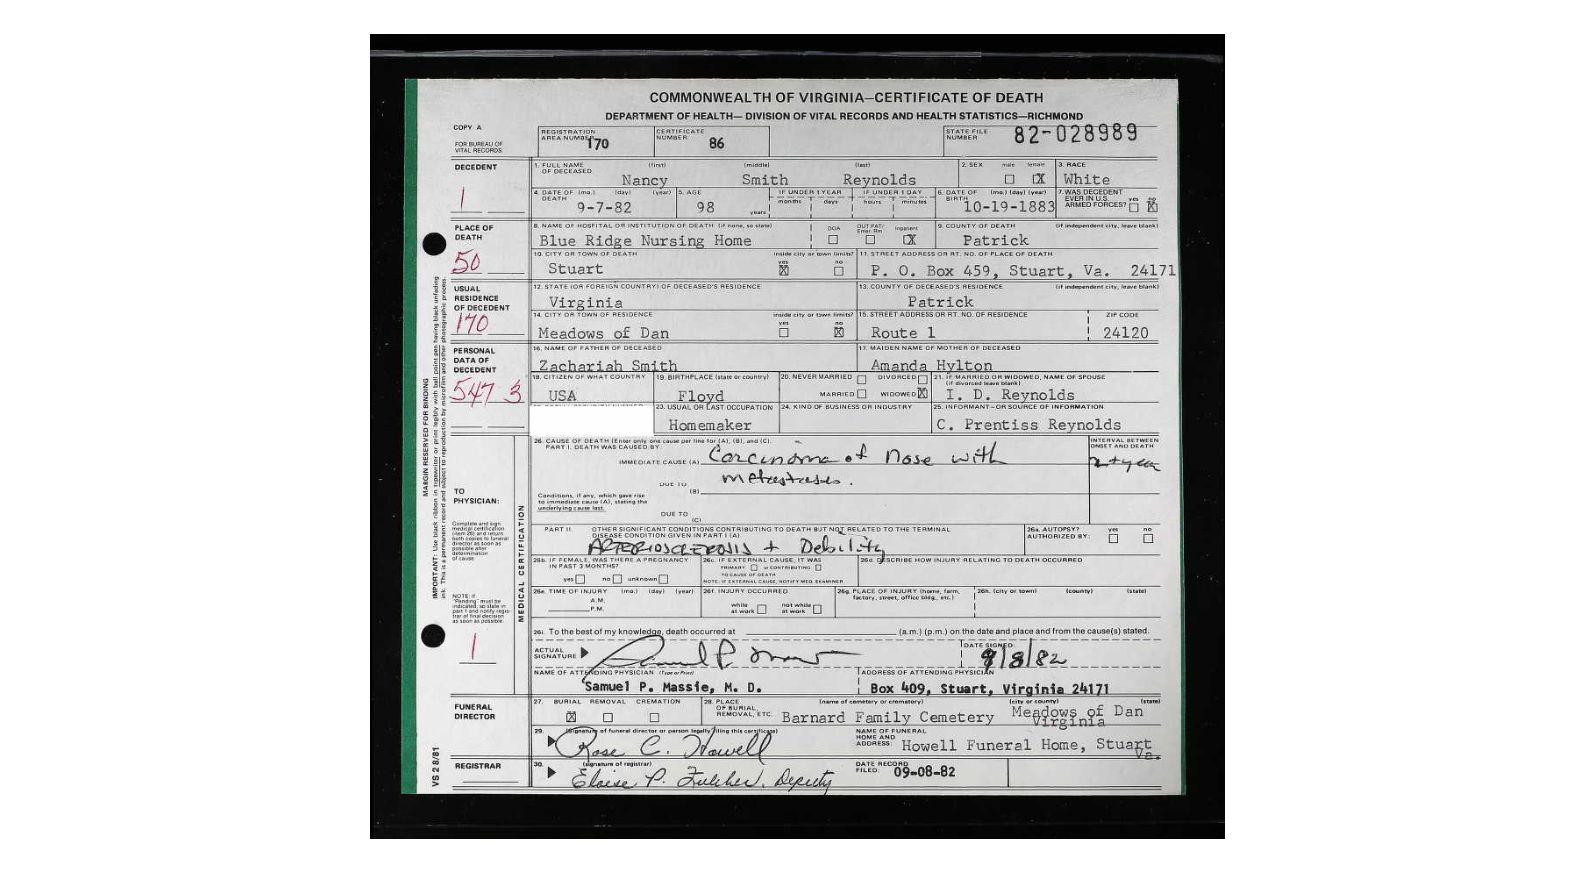 COMMONWEALTH OF VIRGINIA—CERTIFICATE OF DEATH
DEPARTMENT OF HEALTH— DIVISION OF VITAL RECORDS AND HEALTH STATISTICS—RICHMOND
COPY A
FOR BUREAU OF VITAL RECORDS
REGISTRATION AREA NUMBER 170
CERTIFICATE NUMBER 86
STATE FILE NUMBER 82-028989
DECEDENT
1
1. FULL NAME OF DECEASED (first) (middle) (last)
Nancy Smith Reynolds
2. SEX male female X
3. RACE
White
4. DATE OF DEATH (mo.) (day) (year)
9-7-82
5. AGE
98 years
IF UNDER 1 YEAR months days
IF UNDER 1 DAY hours minutes
6. DATE OF BIRTH (mo.) (day) (year)
10-19-1883
7. WAS DECEDENT EVER IN U.S. ARMED FORCES? yes no X
PLACE OF DEATH
50
8. NAME OF HOSPITAL OR INSTITUTION OF DEATH (if none, so state)
Blue Ridge Nursing Home
DOA OUT PAT/ Emer. Rm Inpatient X
9. COUNTY OF DEATH (if independent city, leave blank)
Patrick
10. CITY OR TOWN OF DEATH
Stuart
inside city or town limits? yes X no
11. STREET ADDRESS OR RT. NO. OF PLACE OF DEATH
P. O. Box 459, Stuart, Va. 24171
USUAL RESIDENCE OF DECEDENT
170
12. STATE (OR FOREIGN COUNTRY) OF DECEASED'S RESIDENCE
Virginia
13. COUNTY OF DECEASED'S RESIDENCE (if independent city, leave blank)
Patrick
14. CITY OR TOWN OF RESIDENCE
Meadows of Dan
inside city or town limits? yes no X
15. STREET ADDRESS OR RT. NO. OF RESIDENCE ZIP CODE
Route 1 24120
PERSONAL DATA OF DECEDENT
547 3
16. NAME OF FATHER OF DECEASED
Zachariah Smith
17. MAIDEN NAME OF MOTHER OF DECEASED
Amanda Hylton
18. CITIZEN OF WHAT COUNTRY
USA
19. BIRTHPLACE (state or country)
Floyd
20. NEVER MARRIED DIVORCED
MARRIED WIDOWED X
21. IF MARRIED OR WIDOWED, NAME OF SPOUSE (if divorced leave blank)
I. D. Reynolds
23. USUAL OR LAST OCCUPATION
Homemaker
24. KIND OF BUSINESS OR INDUSTRY
25. INFORMANT—OR SOURCE OF INFORMATION
C. Prentiss Reynolds
MARGIN RESERVED FOR BINDING
IMPORTANT: Use black ribbon in typewriter or print legibly with ball point pen having black unfading ink. This is a permanent record and subject to reproduction by microfilm and other photographic process.
TO PHYSICIAN:
Complete and sign medical certification (item 26) and return both copies to funeral director as soon as possible after determination of cause.
NOTE: If "Pending" must be indicated, so state in part 1 and notify registrar of final decision as soon as possible.
1
MEDICAL CERTIFICATION
26. CAUSE OF DEATH (Enter only one cause per line for (A), (B), and (C).
PART I. DEATH WAS CAUSED BY:
IMMEDIATE CAUSE (A) Carcinoma of Nose with
metastases.
INTERVAL BETWEEN ONSET AND DEATH
DUE TO (B)
Conditions, if any, which gave rise to immediate cause (A), stating the underlying cause last.
DUE TO (C)
PART II. OTHER SIGNIFICANT CONDITIONS CONTRIBUTING TO DEATH BUT NOT RELATED TO THE TERMINAL DISEASE CONDITION GIVEN IN PART I (A)
ARTERIOSCLEROSIS + Debility
26a. AUTOPSY? AUTHORIZED BY: yes no
26b. IF FEMALE, WAS THERE A PREGNANCY IN PAST 3 MONTHS?
yes no unknown
26c. IF EXTERNAL CAUSE, IT WAS
PRIMARY or CONTRIBUTING
TO CAUSE OF DEATH
NOTE: IF EXTERNAL CAUSE, NOTIFY MED. EXAMINER
26d. DESCRIBE HOW INJURY RELATING TO DEATH OCCURRED
26e. TIME OF INJURY (mo.) (day) (year)
A.M.
P.M.
26f. INJURY OCCURRED
while at work not while at work
26g. PLACE OF INJURY (home, farm, factory, street, office bldg., etc.)
26h. (city or town) (county) (state)
26i. To the best of my knowledge, death occurred at (a.m.) (p.m.) on the date and place and from the cause(s) stated.
ACTUAL SIGNATURE
DATE SIGNED:
9/8/82
NAME OF ATTENDING PHYSICIAN (Type or Print)
Samuel P. Massie, M. D.
ADDRESS OF ATTENDING PHYSICIAN
Box 409, Stuart, Virginia 24171
FUNERAL DIRECTOR
27. BURIAL REMOVAL CREMATION
X
28. PLACE OF BURIAL, REMOVAL, ETC. (name of cemetery or crematory) (city or county) (state)
Barnard Family Cemetery Meadows of Dan Virginia
29. (Signature of funeral director or person legally filing this certificate)
Rose C. Howell
NAME OF FUNERAL HOME AND ADDRESS: Howell Funeral Home, Stuart Va.
REGISTRAR
30. (signature of registrar)
Eloise P. Fulcher, Deputy
DATE RECORD FILED: 09-08-82
VS 2 8/81